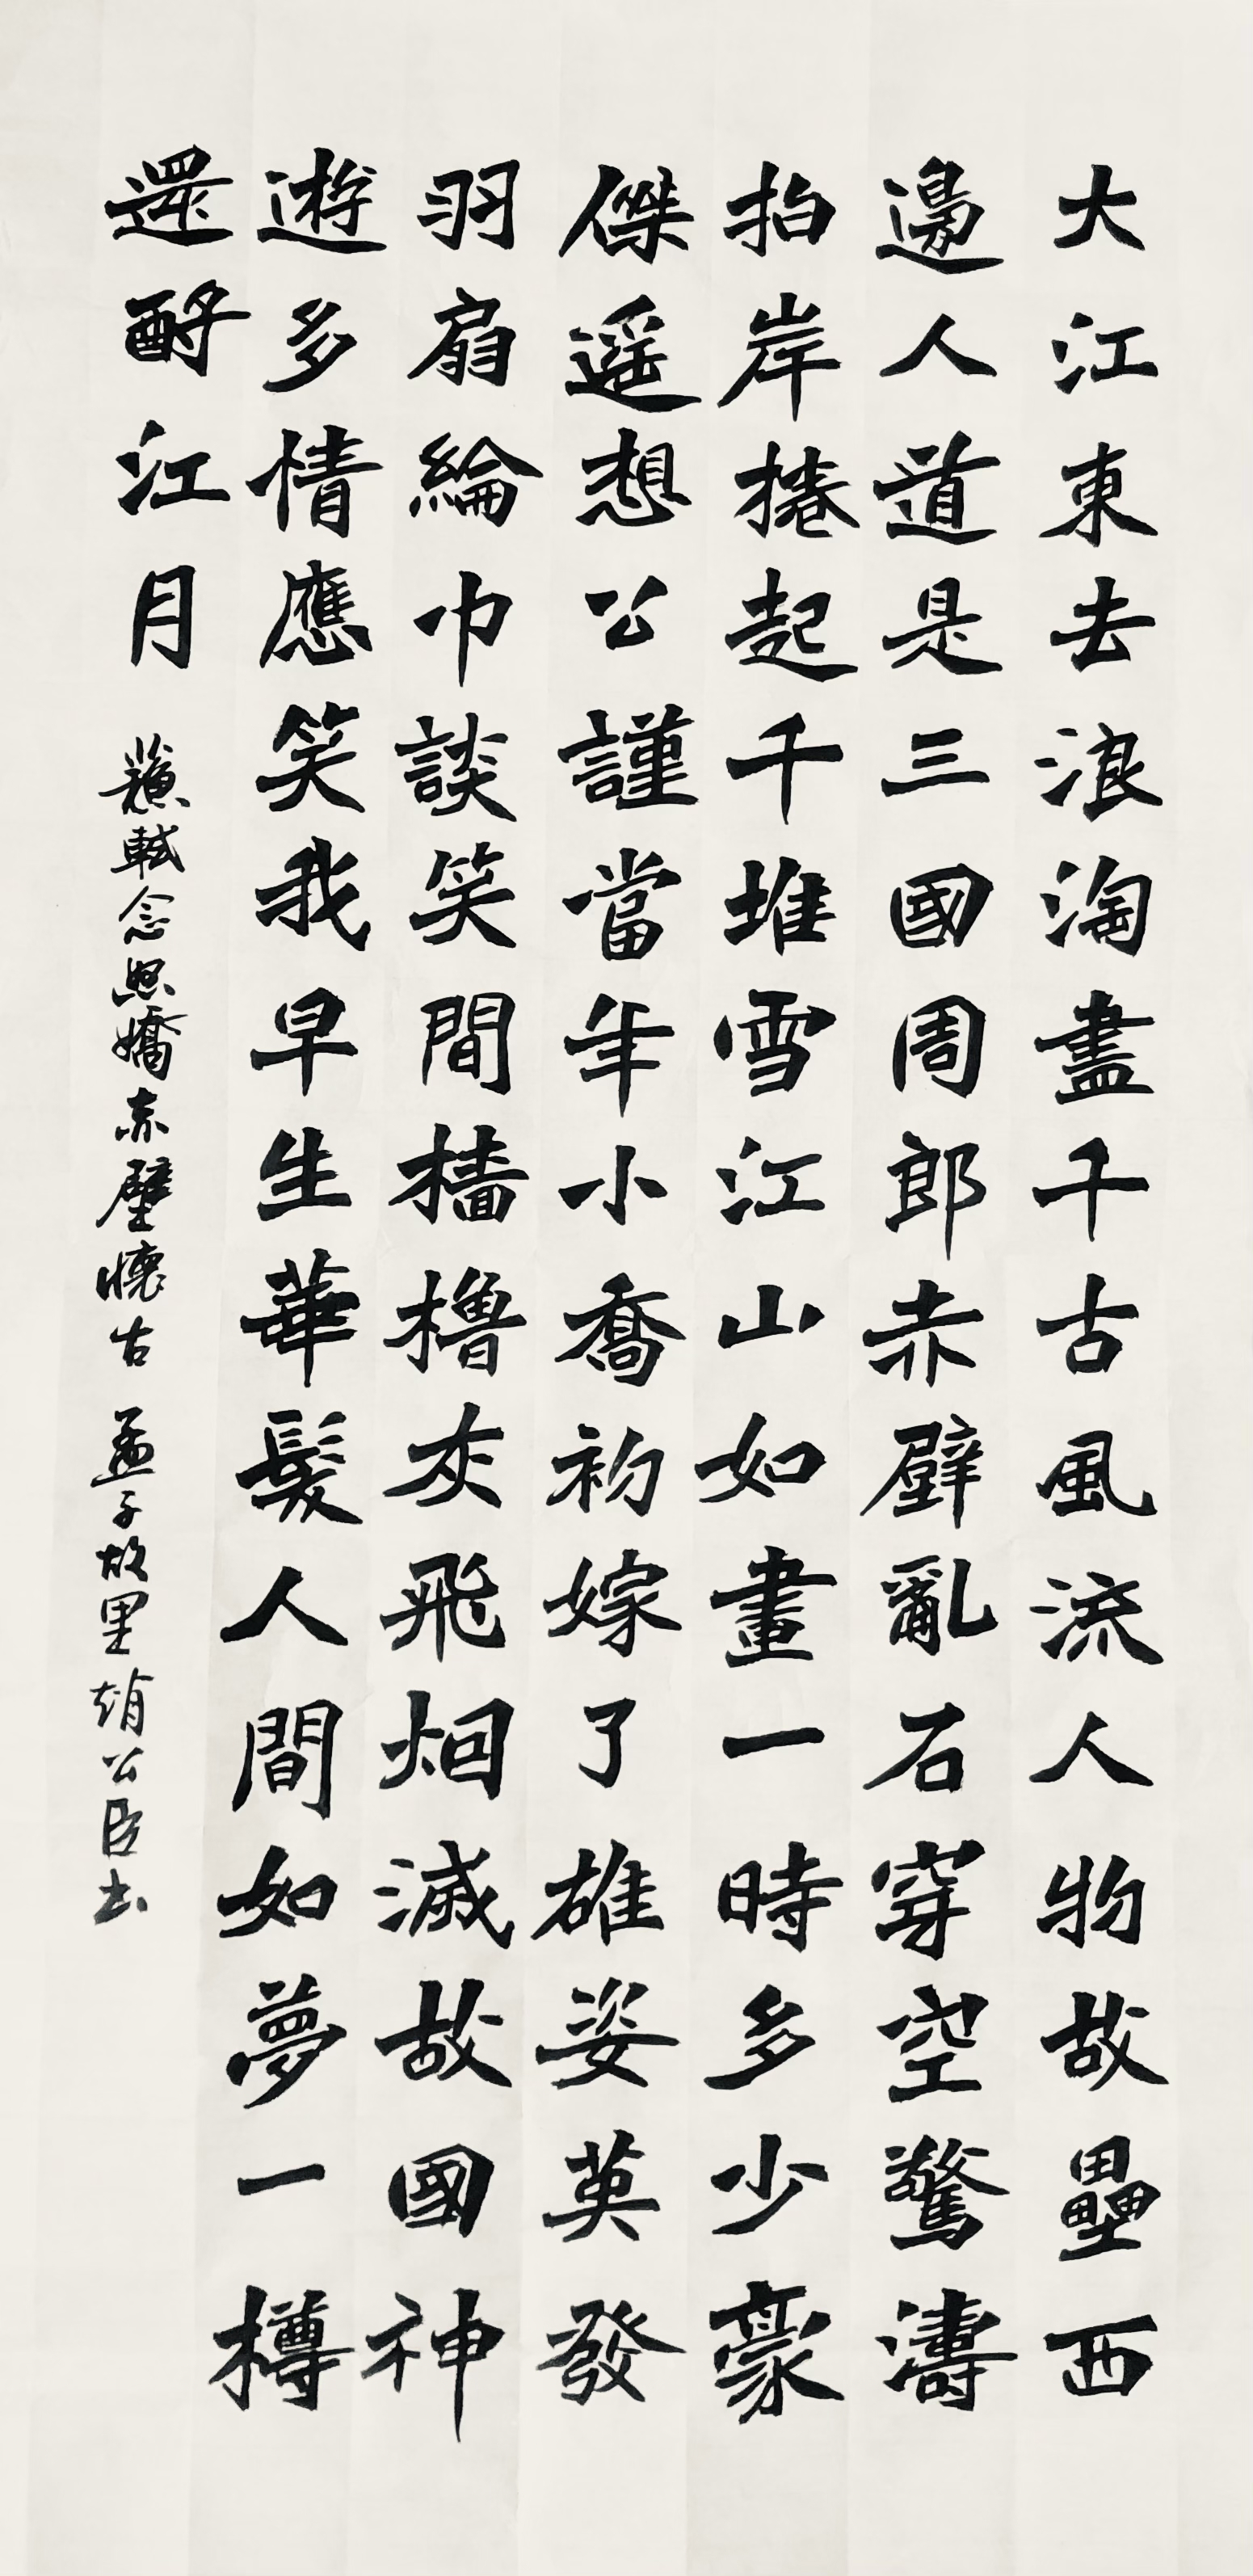 大江東去浪淘盡千古風流人物故壘西
邊人道是三國周郎赤壁亂石穿空驚濤
拍岸捲起千堆雪江山如畫一時多少豪
傑遥想公謹當年小喬初嫁了雄姿英發
羽扇綸巾談笑間檣櫓灰飛烟滅故國神
遊多情應笑我早生華髮人間如夢一樽
還酹江月
蘇軾念奴嬌赤壁懷古 孟子故里趙公臣书